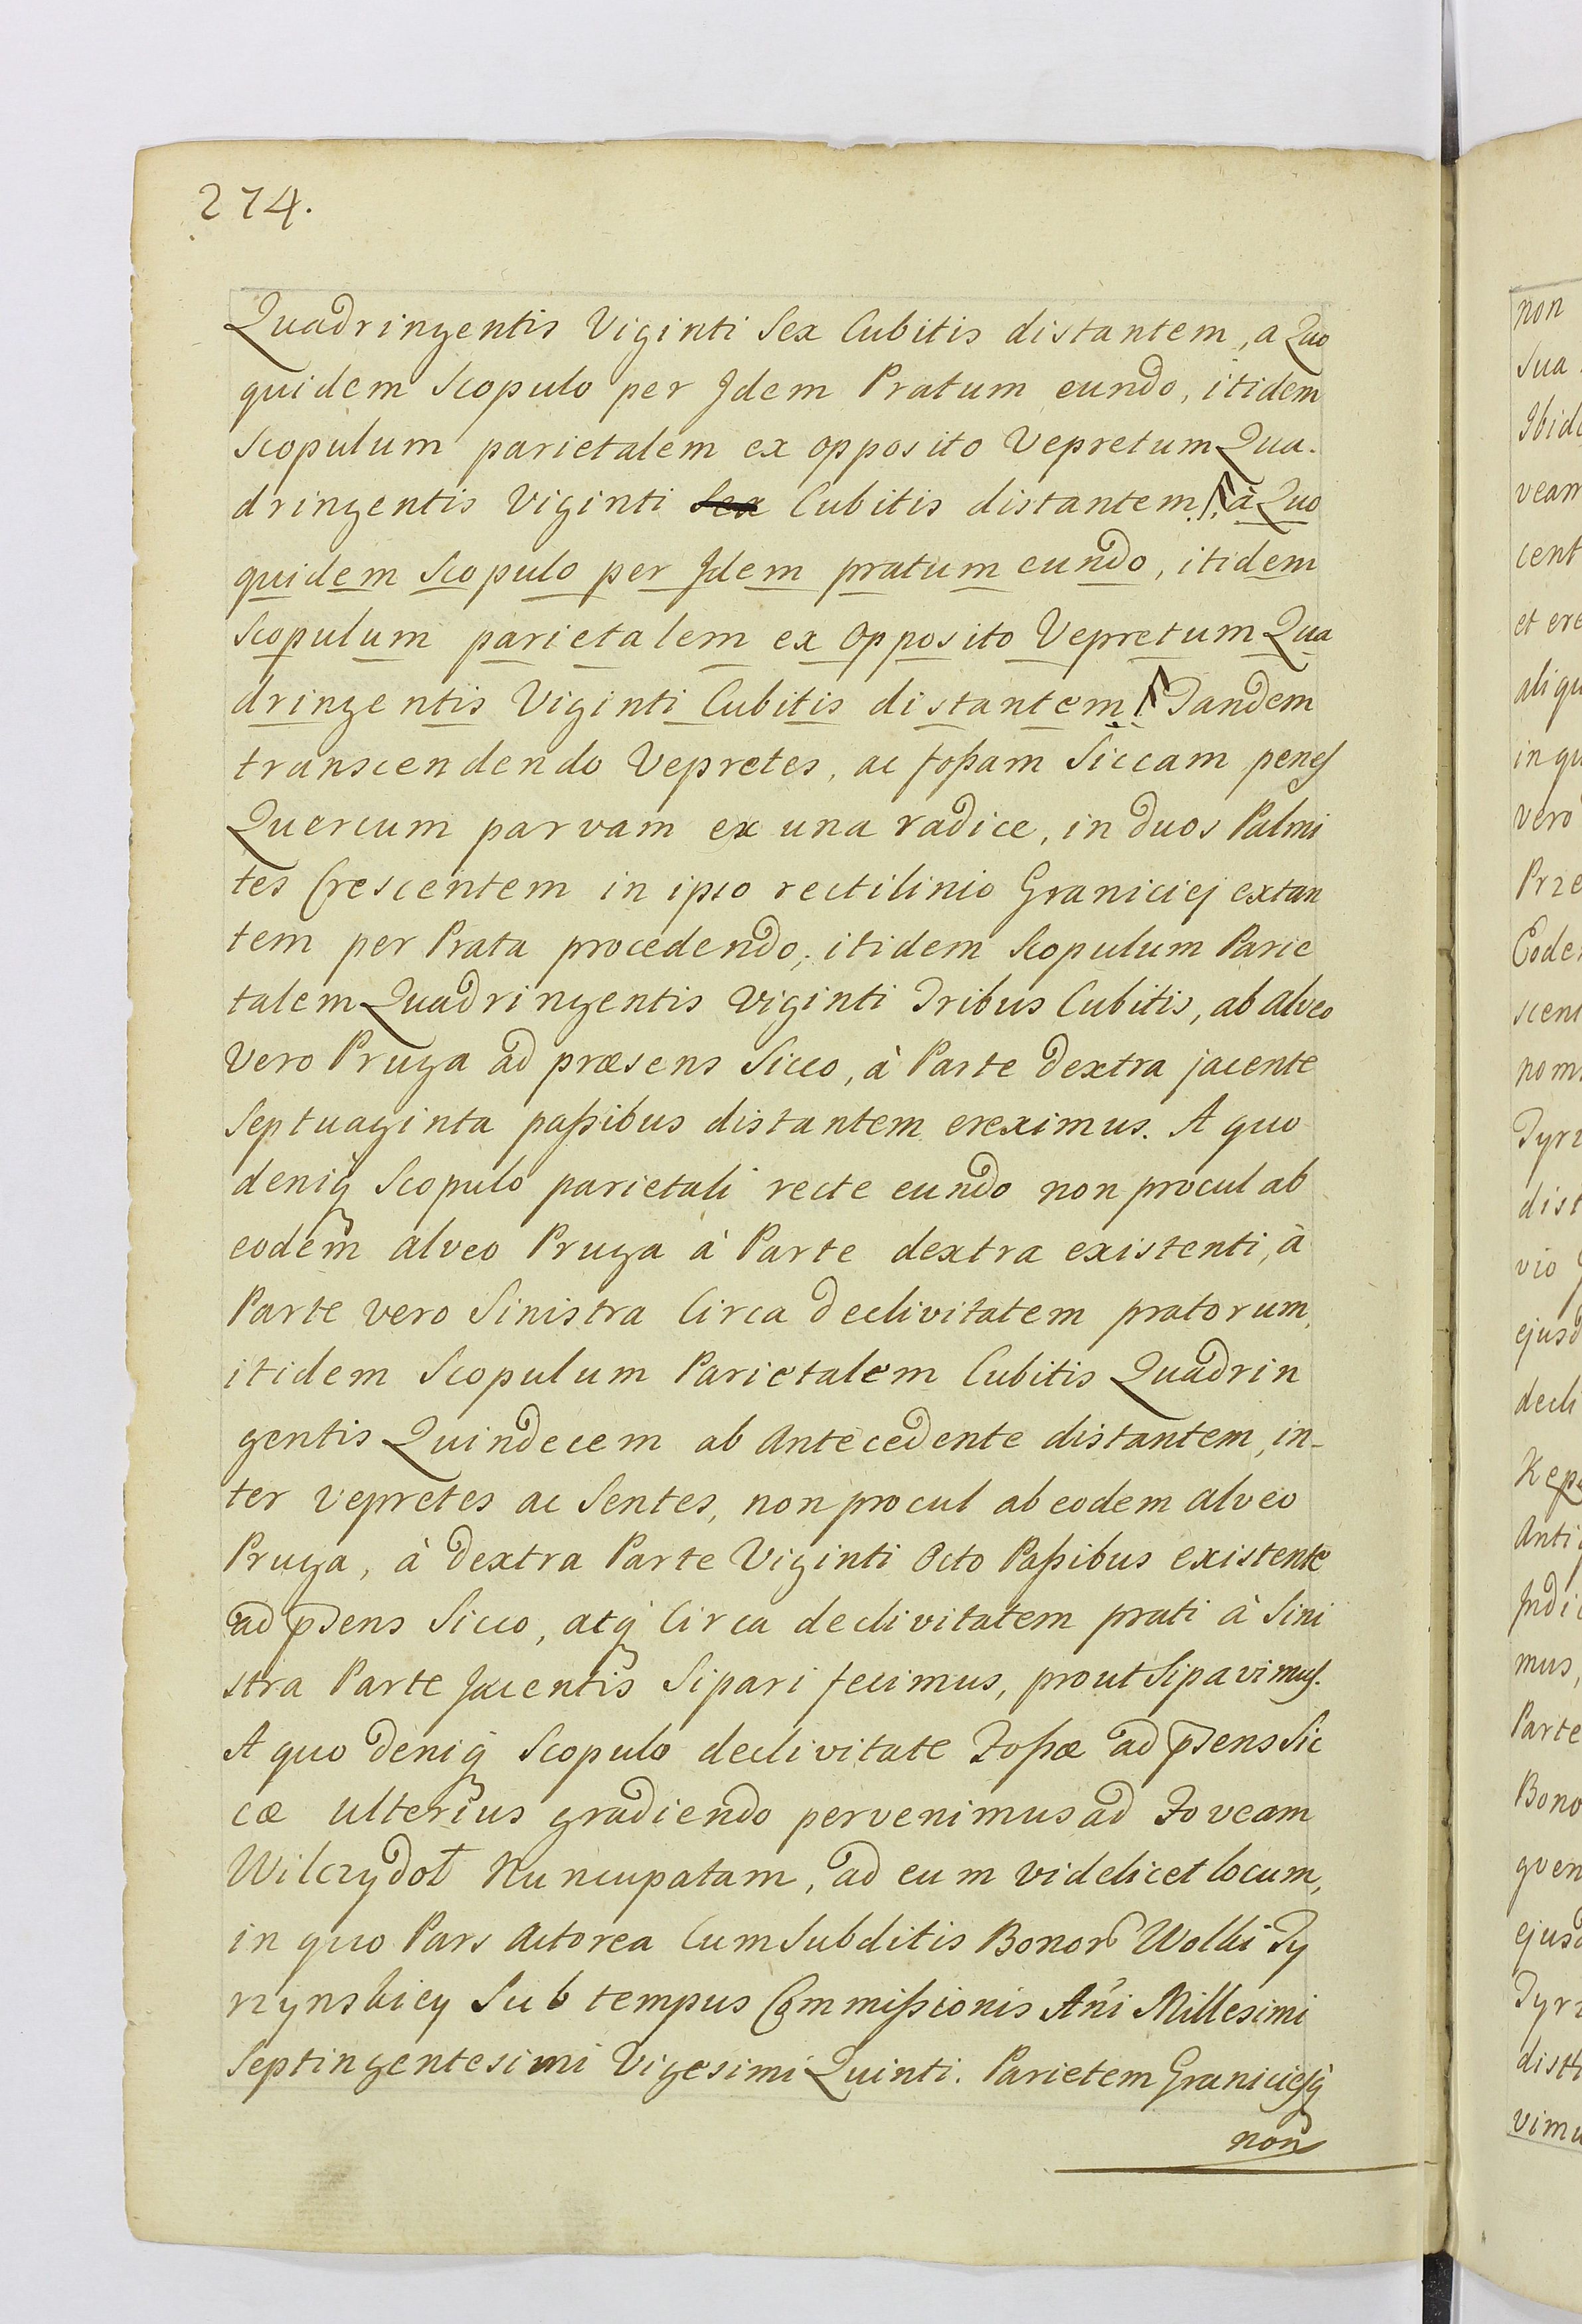 274.
Quadringentis Viginti Sex Cubitis distantem, a Quo
quidem Scopulo per Idem Pratum eundo, itidem
Scopulum parietalem ex opposito Vepretum Qua-
dringentis Viginti Sex Cubitis distantem /: à Quo
quidem Scopulo per Idem pratum eundo, itidem
Scopulum parietalem ex Opposito Vepretum Qua
dringentis Viginti Cubitis distantem :/ Tandem
transcendendo Vepretes, ac foßam Siccam penes
Quercum parvam ex una radice, in duos Palmi
tes Crescentem in ipso rectilinio Graniciej extan
tem per Prata procedendo, itidem Scopulum Parie
talem Quadringentis Viginti Tribus Cubitis, ab alveo
vero Pruga ad præsens Sicco, à Parte dextra jacente
Septuaginta paßibus distantem ereximus. A quo
deniq Scopulo parietali recte eundo non procul ab
eodem alveo Pruga à Parte dextra existenti, à
Parte vero Sinistra Circa declivitatem pratorum,
itidem Scopulum Parietalem Cubitis Quadrin
gentis Quindecem ab Antecedente distantem, in-
ter vepretes ac Sentes, non procul ab eodem alveo
Pruga, à dextra Parte Viginti Octo Paßibus existente
ad pñsens Sicco, atq Circa declivitatem prati à Sini
stra Parte Jacentis Sipari fecimus, prout Sipavimus.
A quo deniq Scopulo declivitate Foßæ ad pñsens Sic
cæ ulterius gradiendo pervenimus ad Foveam
Wilczydoł Nuncupatam, ad eum videlicet locum,
in quo Pars Actorea Cum Subditis Bonor Wolki Ty
rzynskiey Sub tempus Commißionis Añi Millesimi
Septingentesimi Vigesimi Quinti. Parietem Graniciesq
non
non
Sua
Ibid
veam
cent
et ere
aliqu
in qu
vero
Prze
Eode
scen
nom
Tyrz
dist
vio
ejusd
decli
Kepa
Anti
Indi
mus,
Parte
Bono
quen
ejusd
Tyrz
dist
vimu